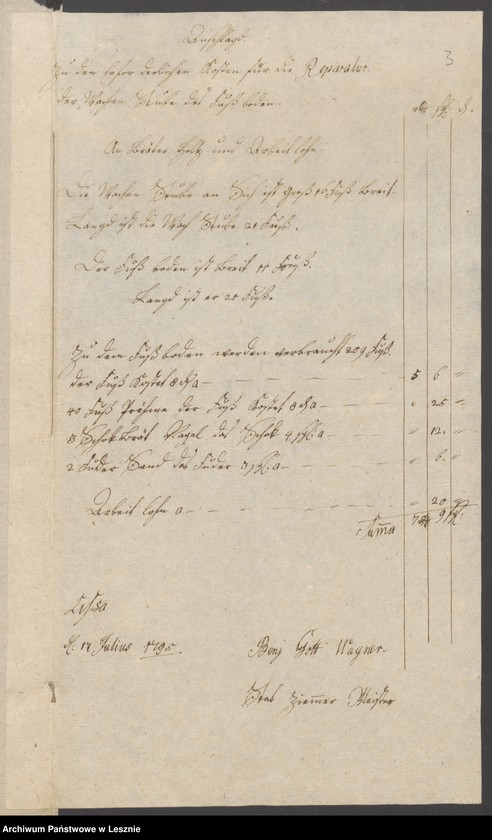 Anschlag
3
Zu den erforderlichen Kosten für die Reparatur
der Wachen Stube des Fuß boden.
rtlr ßgl ₰.
An Bräter Holz und Arbeitslohn
Die Wachen Stube an Sich ist Groß Fuß breit.
Langd ist die Wach Stube 21 Fuß.
Der Fuß boden ist breit 11 Fuß.
Langd ist er 21 Fuß.
Zu dem Fuß boden werden verbraucht 209 Fuß.
der Fuß Kostet 8 a — 5 6 "
40 Fuß der Fuß Kostet 8 a — " 25 "
3 Schok Bröt Nagel das Schok 4 a — " 12. "
2 Fuder Sand das Fuder 3 a — " 6. "
Arbeits lohn a — " 20 "
Summa 7 9
Lissa
d. 11 Julius 1795.
Benj Gott Wagner
Stad Zimmer Meister
Archiwum Państwowe w Lesznie